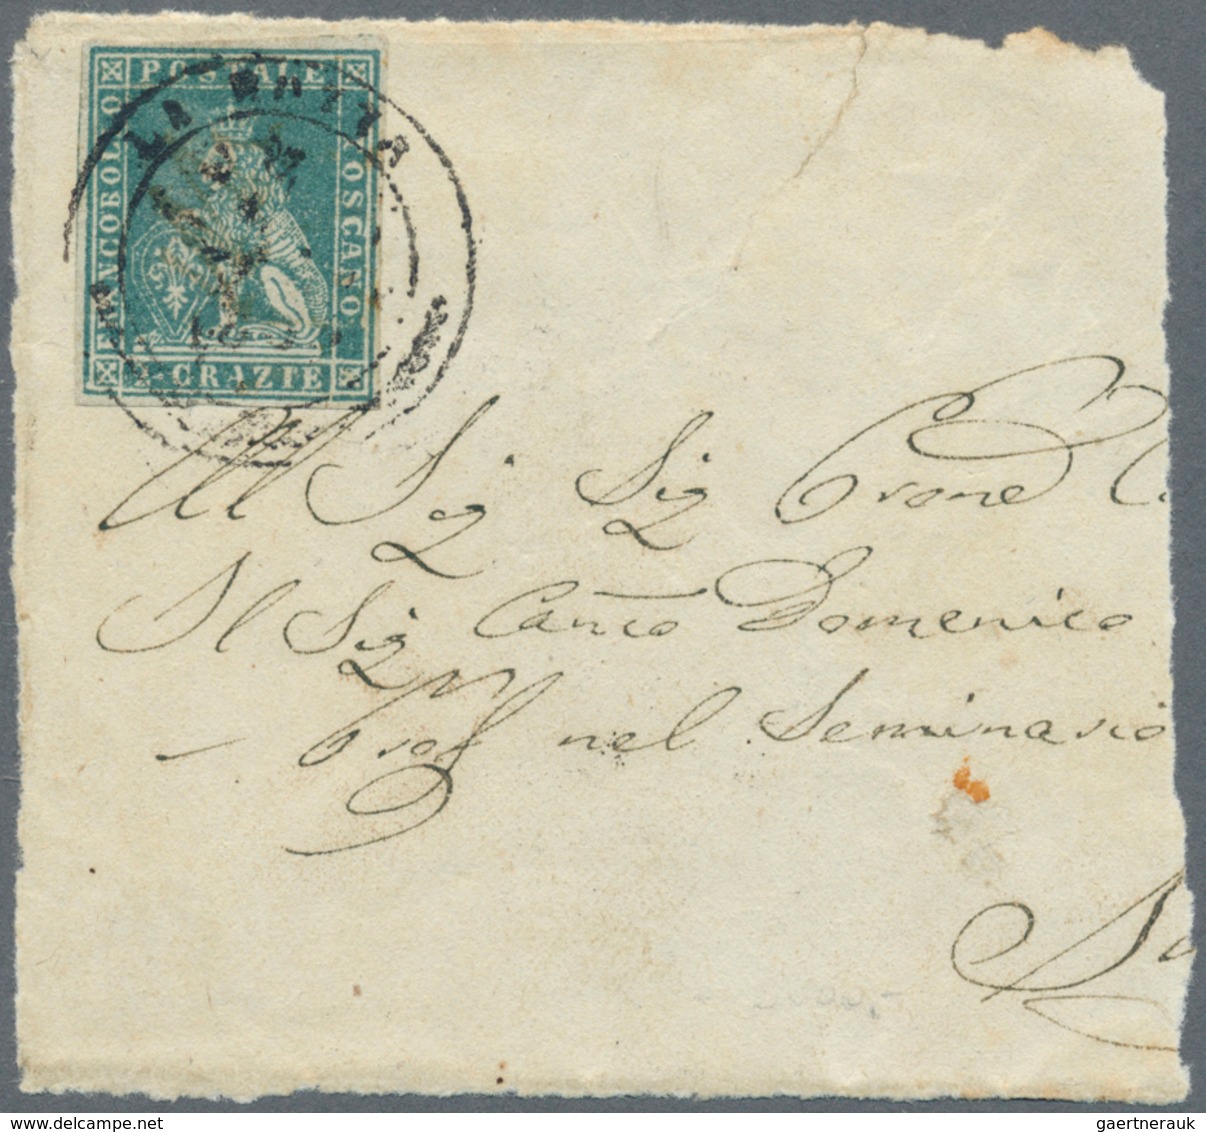 POSTALE
FRANCOBOLLO
TOSCANO
GRAZIE
LA
All Sig Sig Prone
Il Sig Canco Domenico
Prof nel Seminario
delcampe.net
gaertnerauk